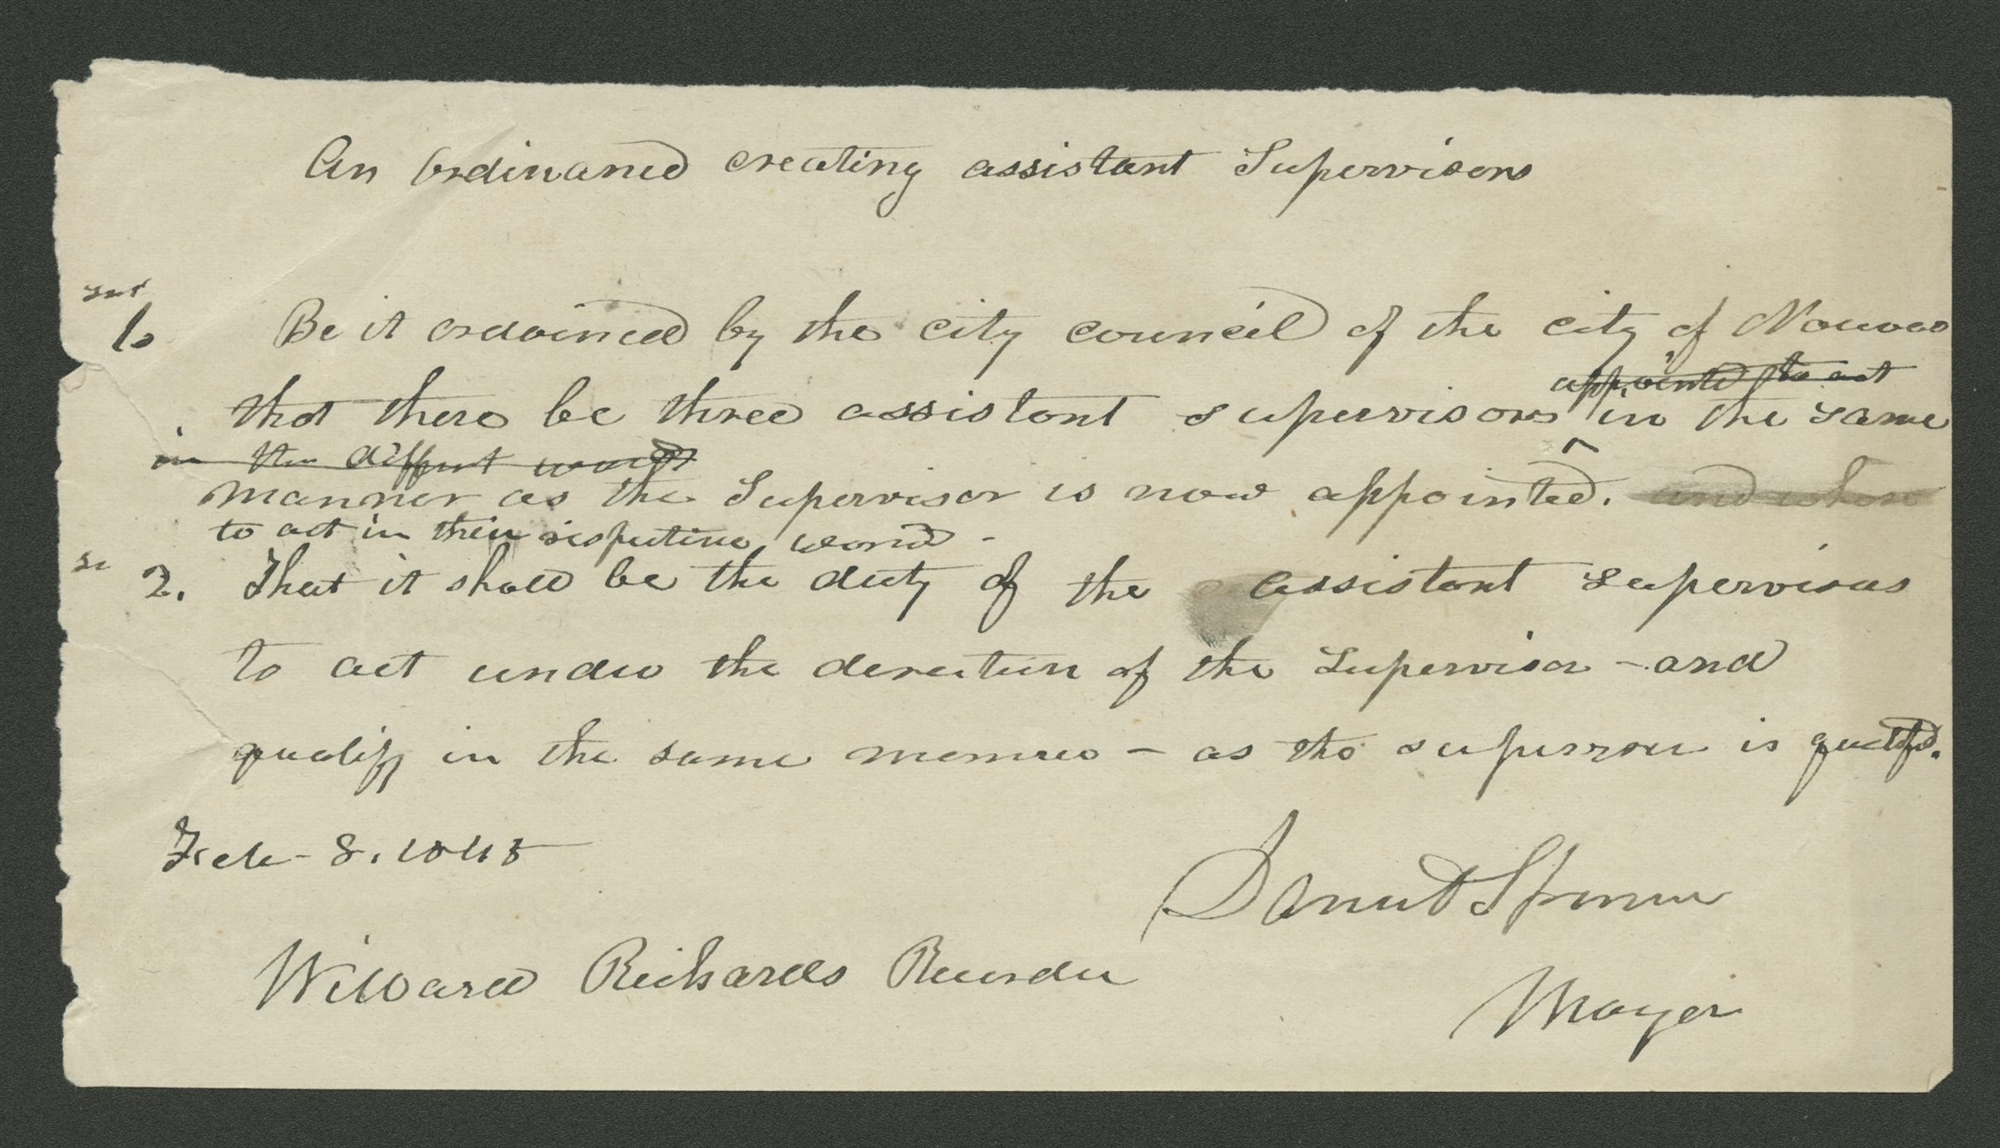 An Ordinance creating assistant Supervisors
Sect
1. Be it ordained by the city council of the city of Nauvoo
appointed to act
that there be three assistant supervisors in the same
in the differnt wards
manner as the Supervisor is now appointed. and whose
to act in their respective wards -
Se 2. That it shall be the duty of the assistant supervisors
to act under the direction of the Supervisor - and
qualify in the same manner - as the supervisor is qualifid.
Feb - 8. 1845
Daniel Spencer
Willard Richards Recorder
Mayor